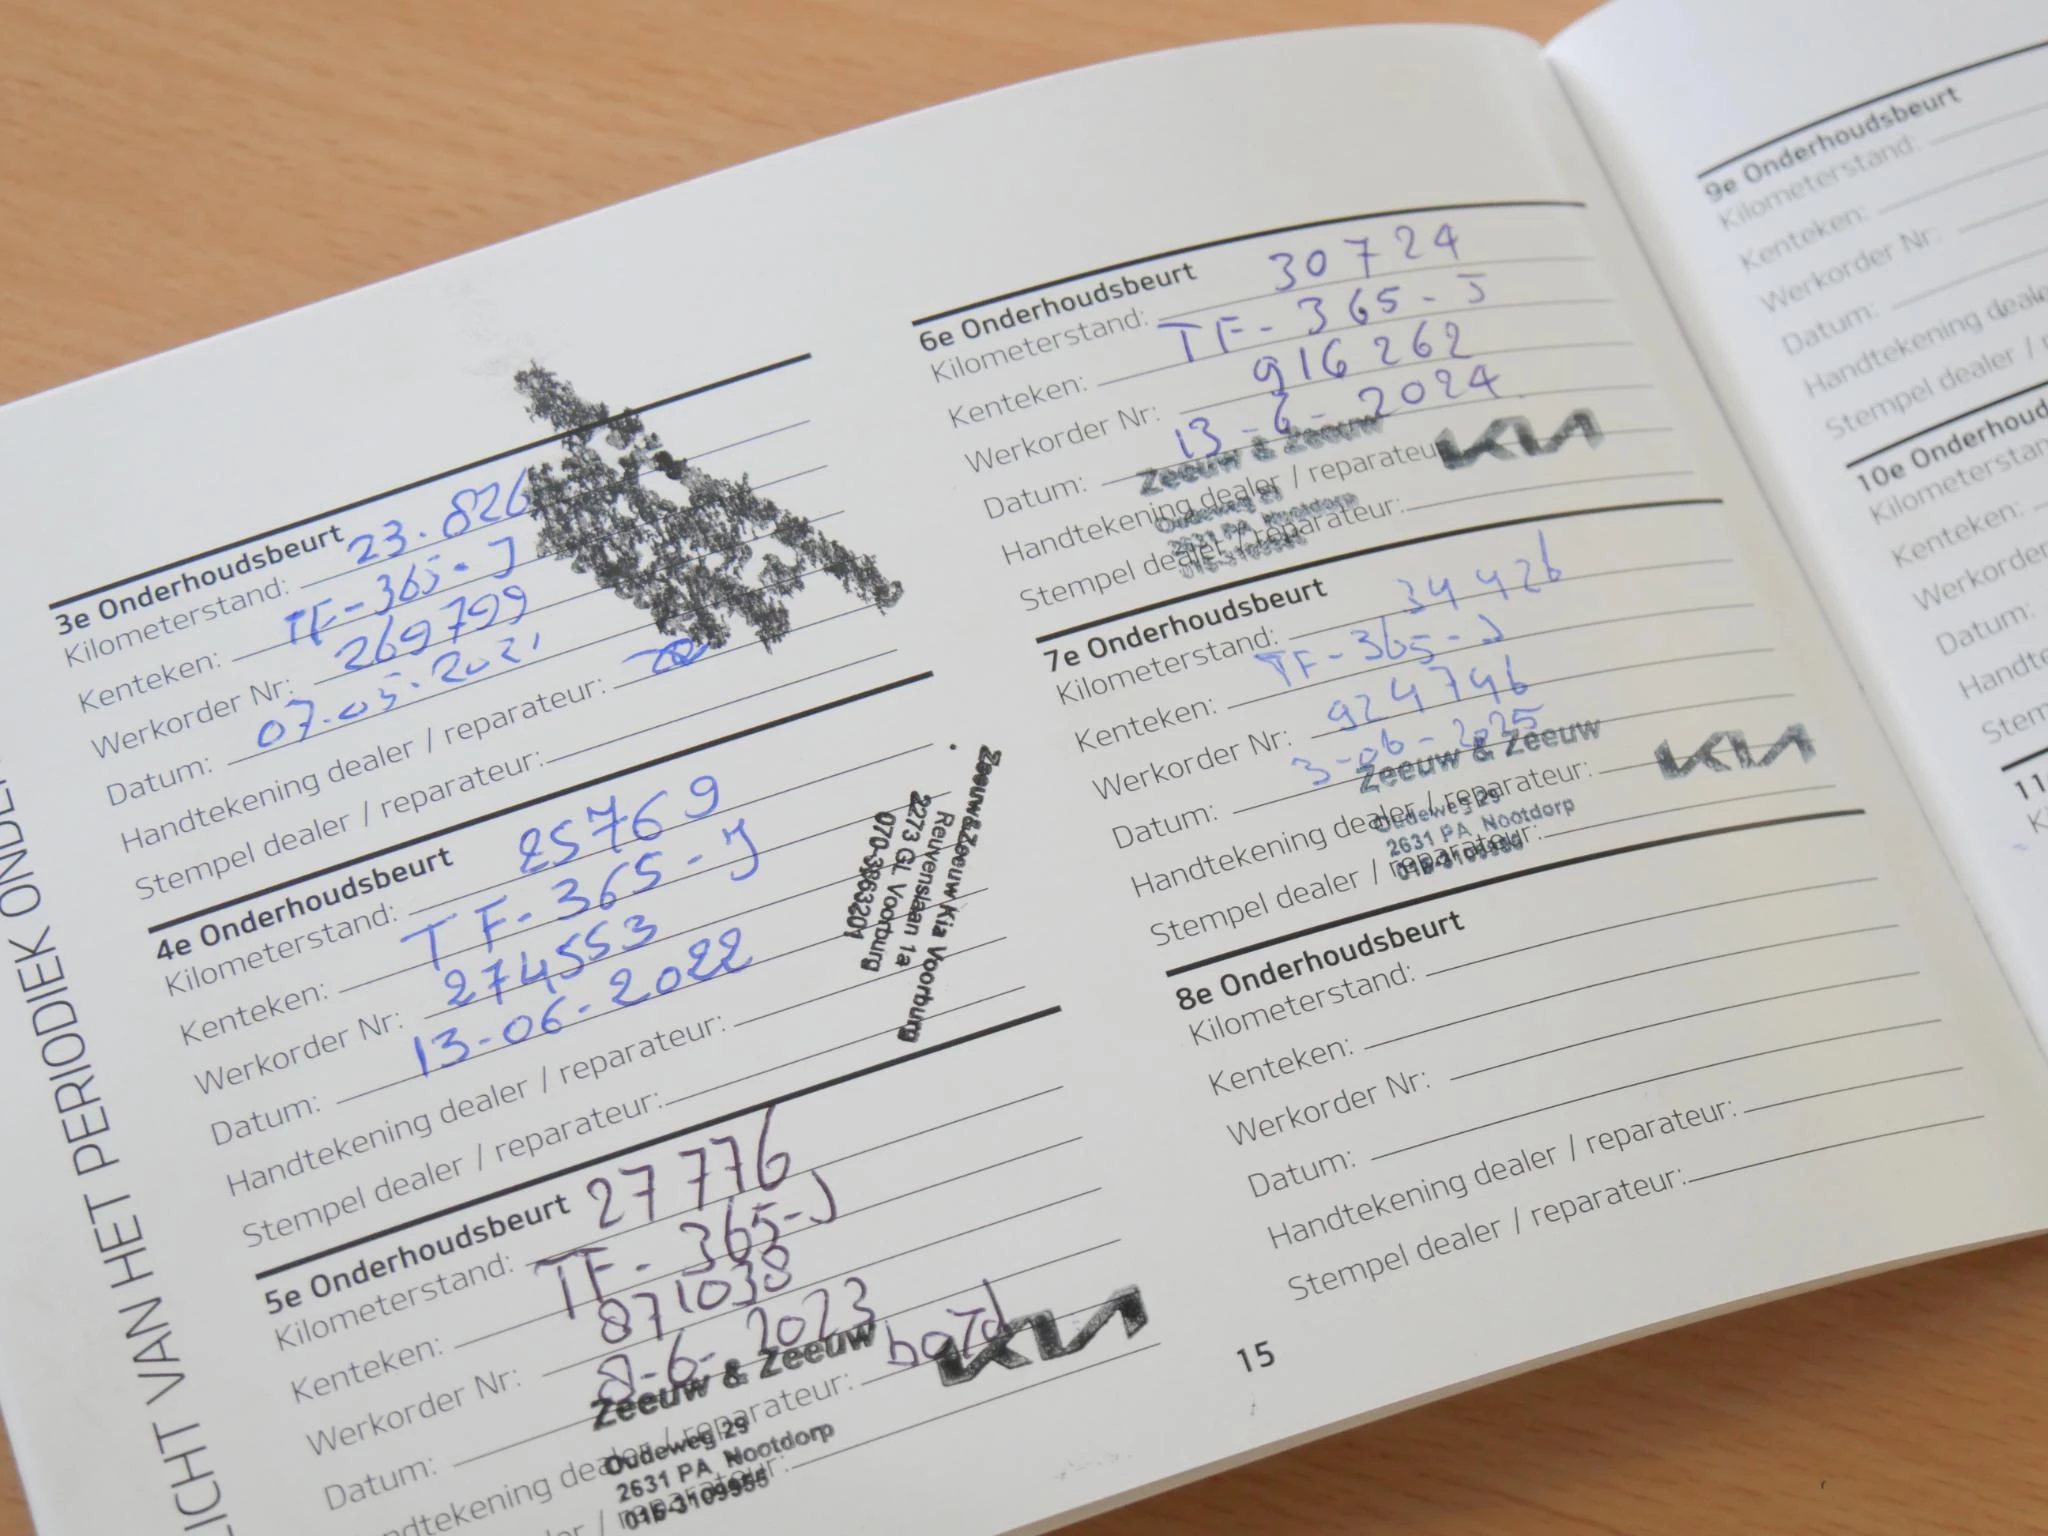 LICHT VAN HET PERIODIEK ONDER
3e Onderhoudsbeurt
Kilometerstand: 23.826
Kenteken: TF-365-J
Werkorder Nr: 269799
Datum: 07-05-2021
Handtekening dealer / reparateur:
Stempel dealer / reparateur:
4e Onderhoudsbeurt
Kilometerstand: 25769
Kenteken: TF-365-J
Werkorder Nr: 274553
Datum: 13-06-2022
Handtekening dealer / reparateur:
Stempel dealer / reparateur:
Zeeuw&Zeeuw Kia Voorburg
Reuvenslaan 1a
2273 GL Voorburg
070-3863201
5e Onderhoudsbeurt
Kilometerstand: 27776
Kenteken: TF-365-J
Werkorder Nr: 871038
Datum: 8-6-2023
Handtekening dealer / reparateur:
dealer / reparateur:
Zeeuw & Zeeuw KIA
Oudeweg 29
2631 PA Nootdorp
015-3109955
6e Onderhoudsbeurt
Kilometerstand: 30724
Kenteken: TF-365-J
Werkorder Nr: 916262
Datum: 13-6-2024
Handtekening dealer / reparateur:
Stempel dealer / reparateur:
Zeeuw & Zeeuw KIA
Oudeweg 29
2631 PA Nootdorp
7e Onderhoudsbeurt
Kilometerstand: 34426
Kenteken: TF-365-J
Werkorder Nr: 924746
Datum: 3-06-2025
Handtekening dealer / reparateur:
Stempel dealer / reparateur:
Zeeuw & Zeeuw KIA
Oudeweg 29
2631 PA Nootdorp
015-3109955
8e Onderhoudsbeurt
Kilometerstand:
Kenteken:
Werkorder Nr:
Datum:
Handtekening dealer / reparateur:
Stempel dealer / reparateur:
15
9e Onderhoudsbeurt
Kilometerstand:
Kenteken:
Werkorder Nr:
Datum:
Handtekening deale
Stempel dealer /
10e Onderhoud
Kilometerstan
Kenteken:
Werkorde
Datum:
Handte
Stem
11